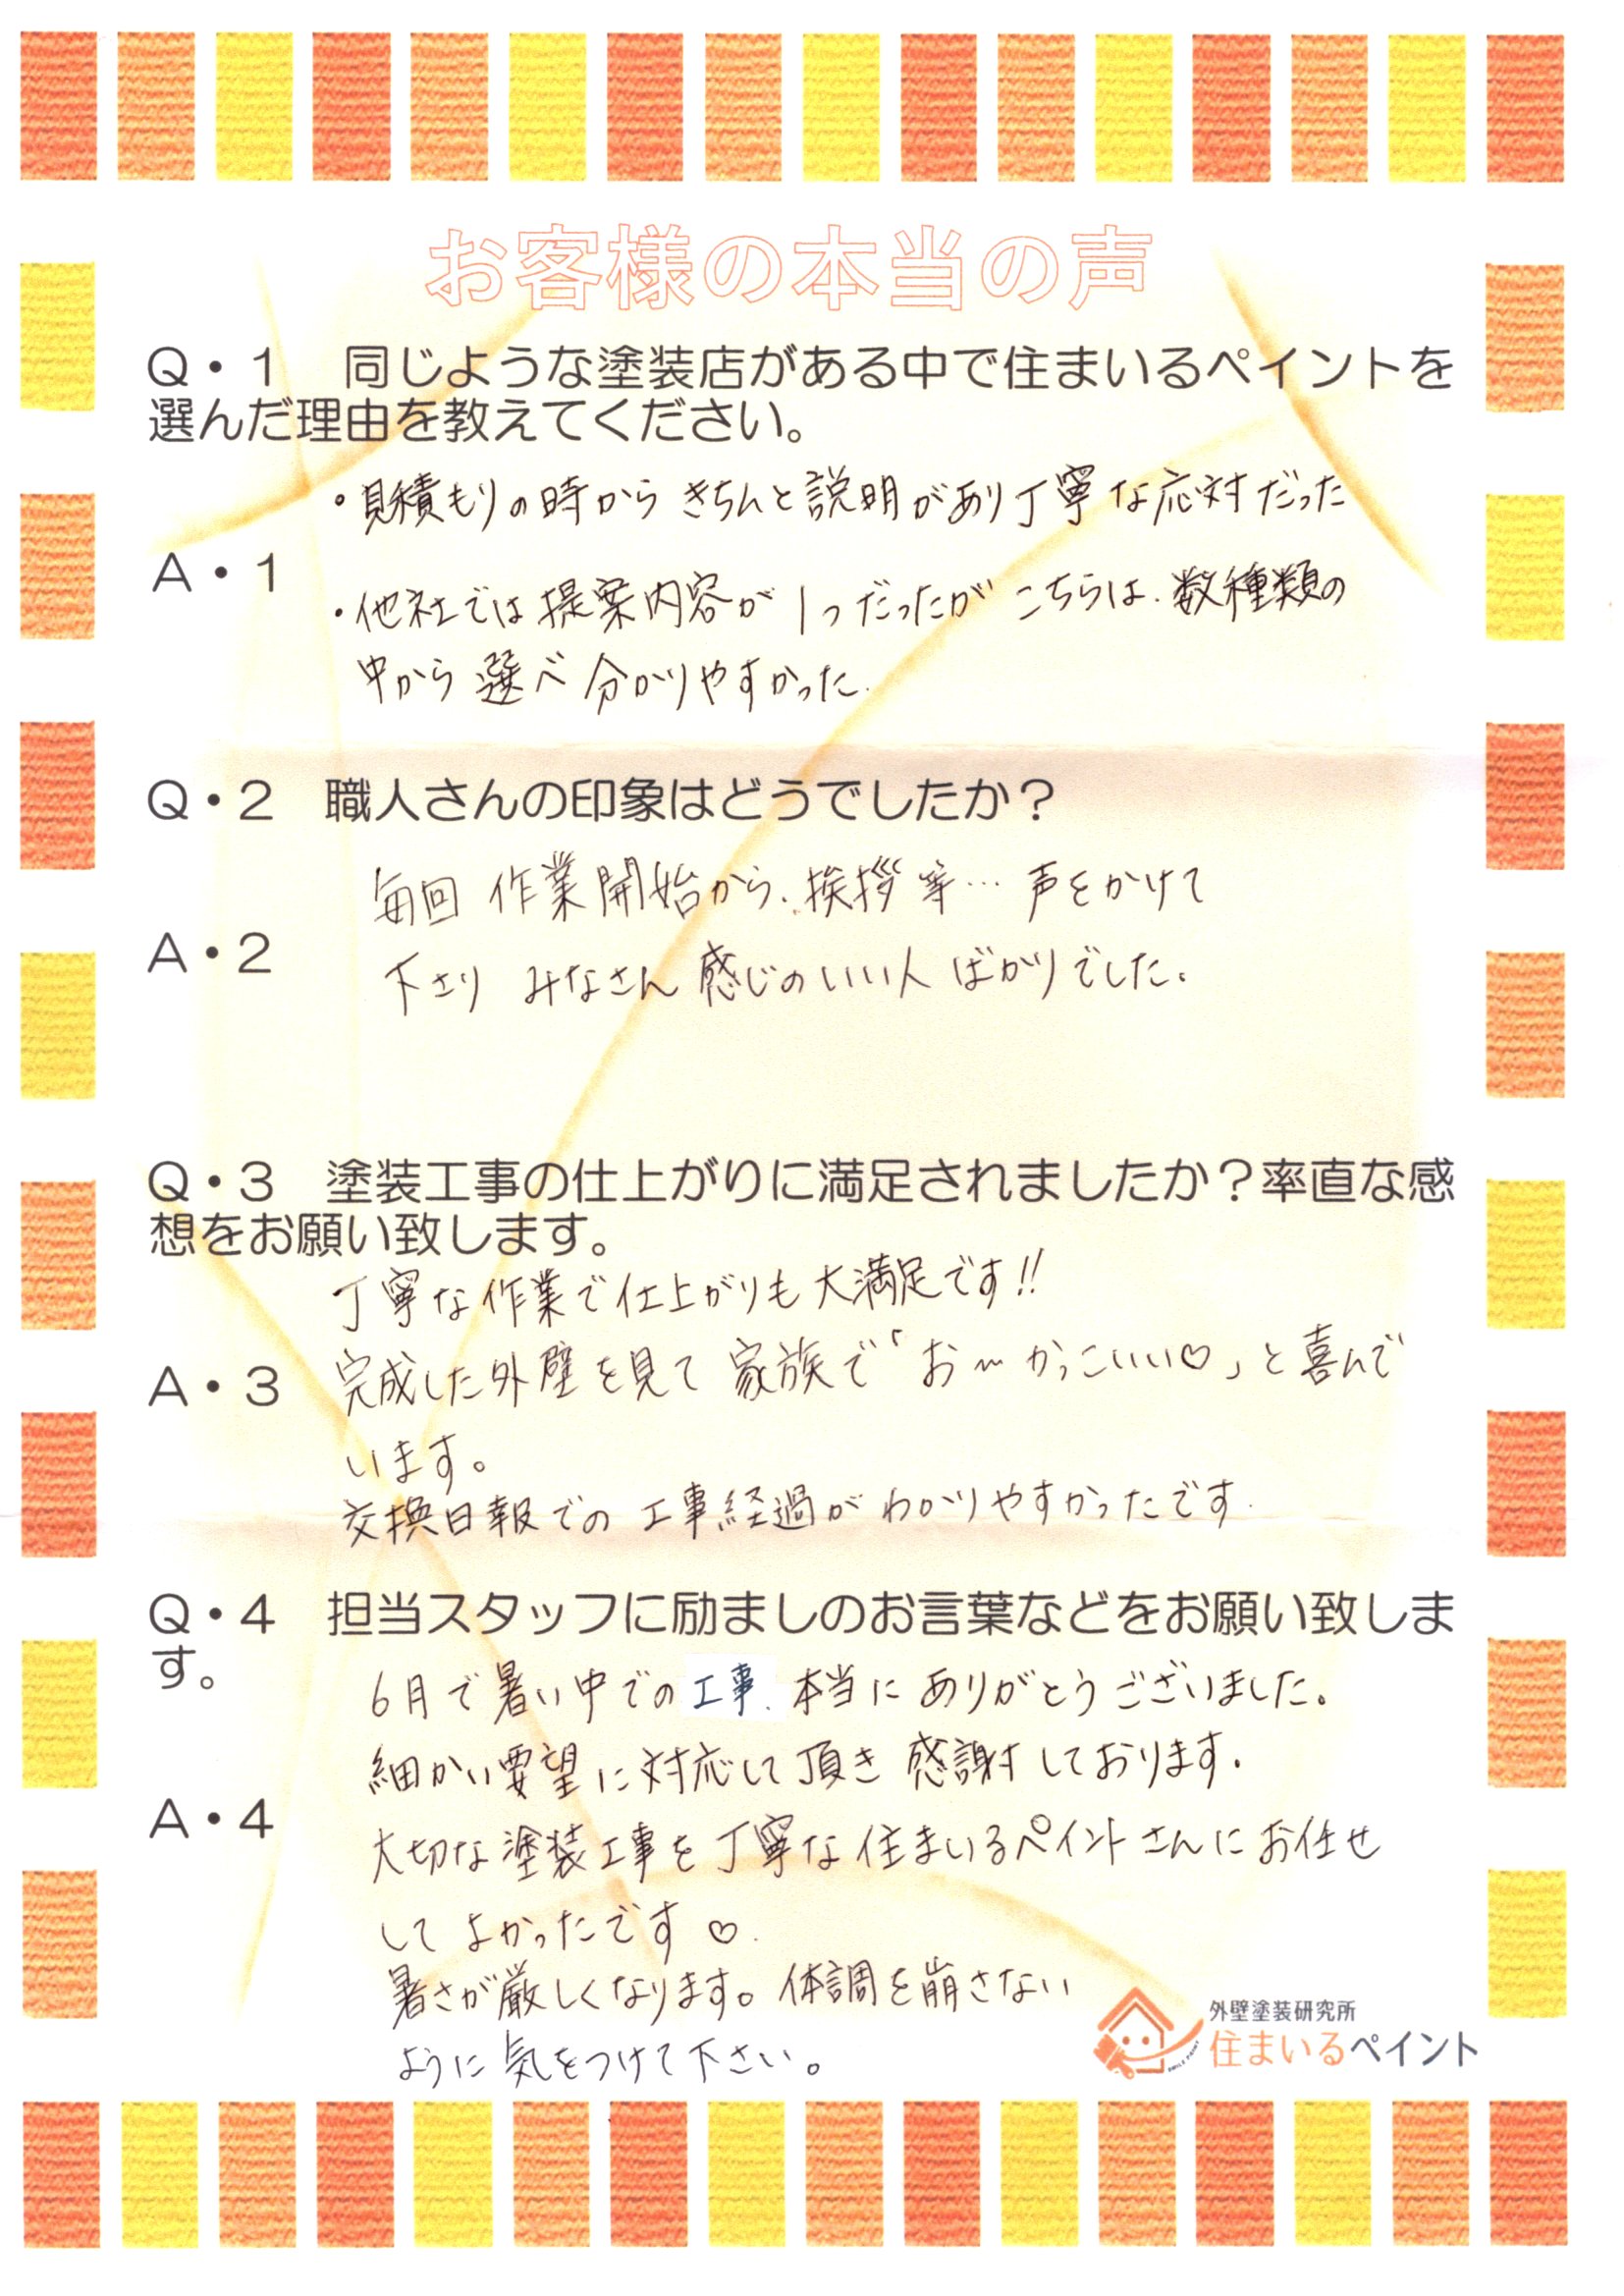 お客様の本当の声
Q・1　同じような塗装店がある中で住まいるペイントを
選んだ理由を教えてください。
・見積もりの時から きちんと説明があり丁寧な応対だった
A・1
・他社では提案内容が1つだったが こちらは、数種類の
中から選べ 分かりやすかった.
Q・2　職人さんの印象はどうでしたか？
毎回 作業開始から、挨拶等… 声をかけて
A・2
下さり みなさん 感じのいい人 ばかりでした。
Q・3　塗装工事の仕上がりに満足されましたか？率直な感
想をお願い致します。
丁寧な作業で仕上がりも大満足です!!
A・3
完成した外壁を見て 家族で「お〜かっこいい♡」と喜んで
います。
交換日報での 工事経過が わかりやすかったです.
Q・4　担当スタッフに励ましのお言葉などをお願い致しま
す。
6月で暑い中での工事、本当に ありがとうございました。
細かい要望に対応して頂き 感謝しております.
A・4
大切な塗装工事を丁寧な住まいるペイントさんにお任せ
して よかったです♡.
暑さが厳しくなります。体調を崩さない
ように 気をつけて下さい。
外壁塗装研究所
住まいるペイント